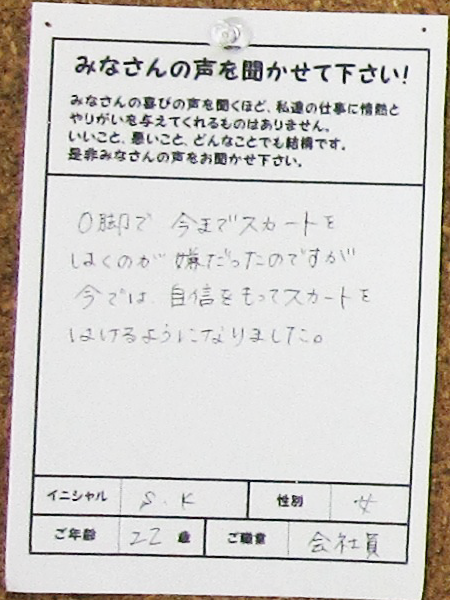 みなさんの声を聞かせて下さい!
みなさんの喜びの声を聞くほど、私達の仕事に情熱と
やりがいを与えてくれるものはありません。
いいこと、悪いこと、どんなことでも結構です。
是非みなさんの声をお聞かせ下さい。
O脚で 今までスカートを
はくのが 嫌だったのですが
今では、自信をもってスカートを
はけるようになりました。
イニシャル S.K 性別 女
ご年齢 22 歳 ご職業 会社員